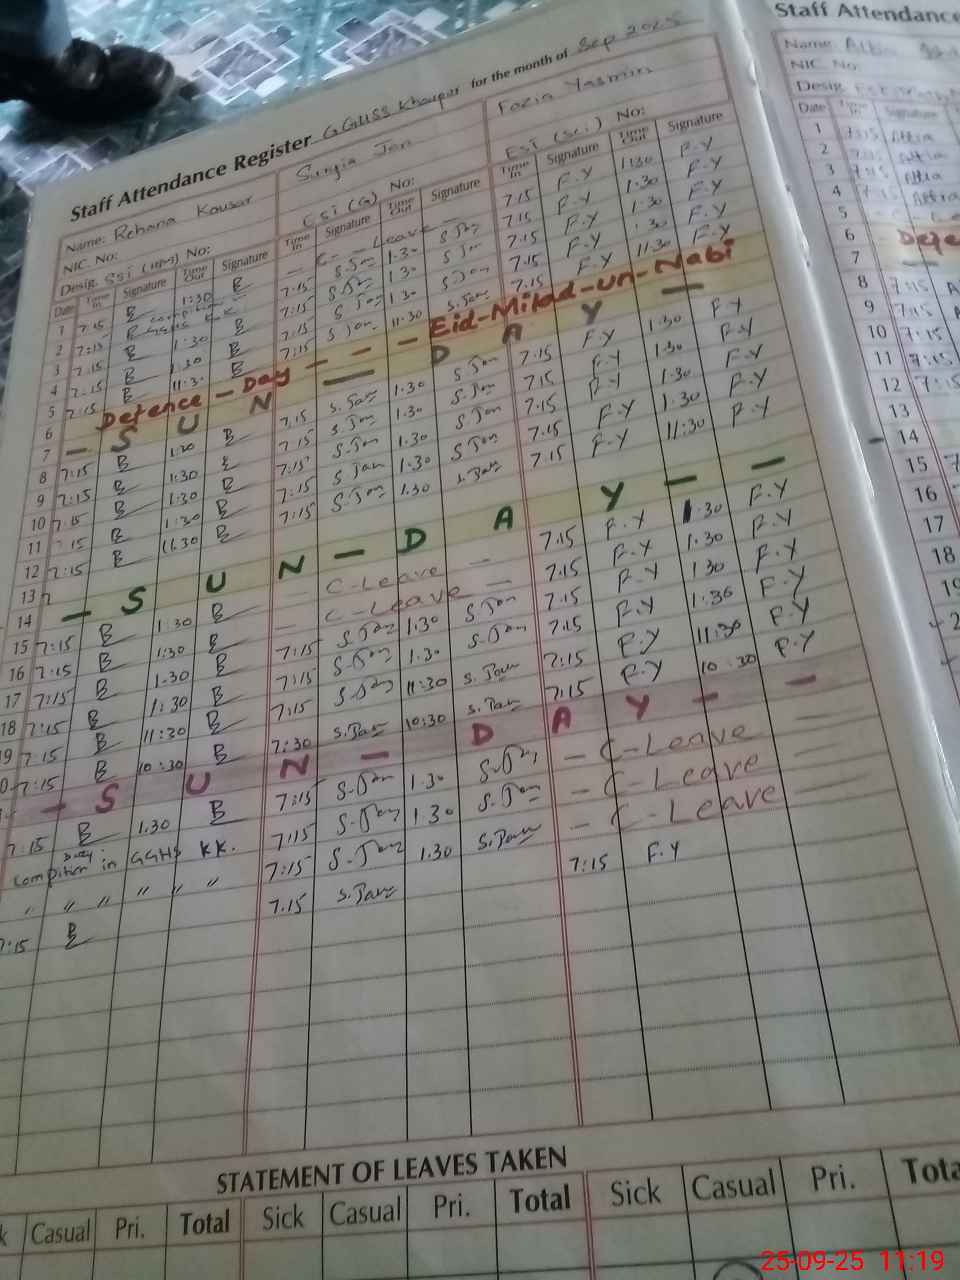 Staff Attendance Register GGHSS Khanpur for the month of Sep 2025
Name: Rehana Kousar
NIC. No: No:
Desig. SSi (HM)
Date Time In Signature Time Out Signature
1 7:15 B 1:30 B
2 7:15
3 7:15 B 1:30 B
4 7:15 B 1:30 B
5 7:15 B 11:30 B
6 Defence - Day - - - Eid-Milad-un-Nabi
7 - S U N — D A Y —
8 7:15 B 1:30 B
9 7:15 B 1:30 B
10 7:15 B 1:30 B
11 7:15 B 1:30 B
12 7:15 B 11:30 B
13
14 - S U N - D A Y - -
15 7:15 B 1:30 B
16 7:15 B 1:30 B
17 7:15 B 1:30 B
18 7:15 B 1:30 B
19 7:15 B 11:30 B
7:15 B 10:30 B
- S U N - D A Y - -
7:15 B 1:30 B
Duty in GGHS KK.
" " " " " "
7:15 B
Jan
ESi (G) No:
Time In Signature Time Out Signature
- C - Leave -
7:15 S.Jan 1:30 S.Jan
7:15 S.Jan 1:30 S Jan
7:15 S Jan 1:30 S Jan
7:15 S Jan 11:30 S.Jan
7:15 S.Jan 1:30 S.Jan
7:15 S.Jan 1:30 S.Jan
7:15 S.Jan 1:30 S.Jan
7:15 S Jan 1:30 S Jan
7:15 S.Jan 1:30 S.Jan
- C-Leave -
- C-Leave -
7:15 S.Jan 1:30 S.Jan
7:15 S.Jan 1:30 S.Jan
7:15 S.Jan 11:30 S.Jan
7:30 S.Jan 10:30 S.Jan
7:15 S.Jan 1:30 S.Jan
7:15 S.Jan 1:30 S.Jan
7:15 S.Jan 1:30 S.Jan
7:15 S.Jan
Fozia Yasmin
ESi (Sci) No:
Time In Signature Time Out Signature
7:15 F.Y 1:30 F.Y
7:15 F.Y 1:30 F.Y
7:15 F.Y 1:30 F.Y
7:15 F.Y 1:30 F.Y
7:15 F.Y 11:30 F.Y
7:15 F.Y 1:30 F.Y
7:15 F.Y 1:30 F.Y
7:15 F.Y 1:30 F.Y
7:15 F.Y 1:30 F.Y
7:15 F.Y 11:30 F.Y
7:15 F.Y 1:30 F.Y
7:15 F.Y 1:30 F.Y
7:15 F.Y 1:30 F.Y
7:15 F.Y 1:30 F.Y
7:15 F.Y 11:30 F.Y
7:15 F.Y 10:30 F.Y
- C-Leave
- C-Leave
- C-Leave
7:15 F.Y
STATEMENT OF LEAVES TAKEN
Casual Pri. Total Sick Casual Pri. Total Sick Casual Pri. Total
Staff Attendance
Name:
NIC. No:
Desig.
Date Time In Signature
1 7:15 Attia
2 7:15 Attia
3 7:15 Attia
4 7:15 Attia
5
6 Defe
7 —
8 7:15 A
9 7:15 A
10 7:15
11 7:15
12 7:15
13
14
15 7
16
17
18
25-09-25 11:19